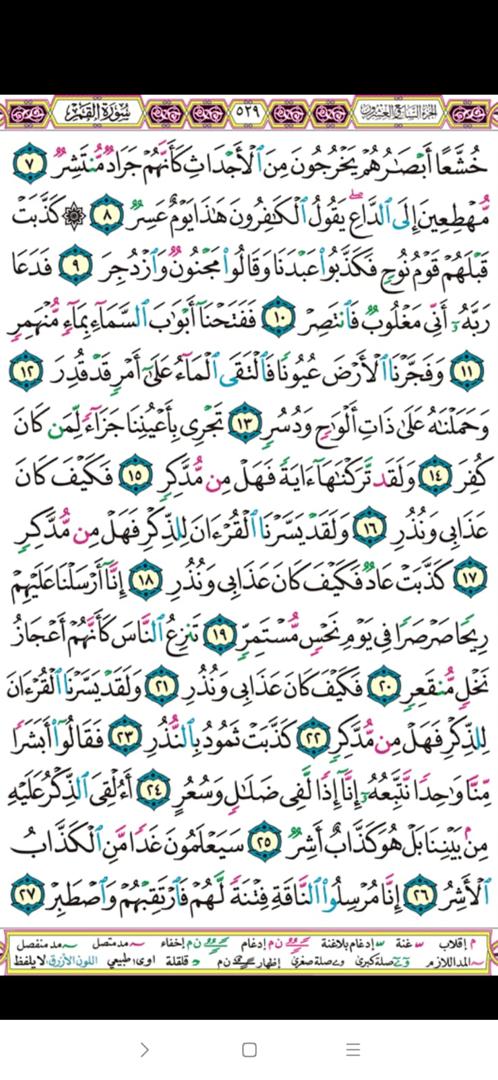 الجزء السابع والعشرون ٥٢٩ سورة القمر
خُشَّعًا أَبْصَٰرُهُمْ يَخْرُجُونَ مِنَ ٱلْأَجْدَاثِ كَأَنَّهُمْ جَرَادٌ مُّنتَشِرٌ ٧
مُّهْطِعِينَ إِلَى ٱلدَّاعِ يَقُولُ ٱلْكَٰفِرُونَ هَٰذَا يَوْمٌ عَسِرٌ ٨ ۞ كَذَّبَتْ
قَبْلَهُمْ قَوْمُ نُوحٍ فَكَذَّبُوا۟ عَبْدَنَا وَقَالُوا۟ مَجْنُونٌ وَٱزْدُجِرَ ٩ فَدَعَا
رَبَّهُۥٓ أَنِّى مَغْلُوبٌ فَٱنتَصِرْ ١٠ فَفَتَحْنَآ أَبْوَٰبَ ٱلسَّمَآءِ بِمَآءٍ مُّنْهَمِرٍ
١١ وَفَجَّرْنَا ٱلْأَرْضَ عُيُونًا فَٱلْتَقَى ٱلْمَآءُ عَلَىٰٓ أَمْرٍ قَدْ قُدِرَ ١٢
وَحَمَلْنَٰهُ عَلَىٰ ذَاتِ أَلْوَٰحٍ وَدُسُرٍ ١٣ تَجْرِى بِأَعْيُنِنَا جَزَآءً لِّمَن كَانَ
كُفِرَ ١٤ وَلَقَد تَّرَكْنَٰهَآ ءَايَةً فَهَلْ مِن مُّدَّكِرٍ ١٥ فَكَيْفَ كَانَ
عَذَابِى وَنُذُرِ ١٦ وَلَقَدْ يَسَّرْنَا ٱلْقُرْءَانَ لِلذِّكْرِ فَهَلْ مِن مُّدَّكِرٍ
١٧ كَذَّبَتْ عَادٌ فَكَيْفَ كَانَ عَذَابِى وَنُذُرِ ١٨ إِنَّآ أَرْسَلْنَا عَلَيْهِمْ
رِيحًا صَرْصَرًا فِى يَوْمِ نَحْسٍ مُّسْتَمِرٍّ ١٩ تَنزِعُ ٱلنَّاسَ كَأَنَّهُمْ أَعْجَازُ
نَخْلٍ مُّنقَعِرٍ ٢٠ فَكَيْفَ كَانَ عَذَابِى وَنُذُرِ ٢١ وَلَقَدْ يَسَّرْنَا ٱلْقُرْءَانَ
لِلذِّكْرِ فَهَلْ مِن مُّدَّكِرٍ ٢٢ كَذَّبَتْ ثَمُودُ بِٱلنُّذُرِ ٢٣ فَقَالُوٓا۟ أَبَشَرًا
مِّنَّا وَٰحِدًا نَّتَّبِعُهُۥٓ إِنَّآ إِذًا لَّفِى ضَلَٰلٍ وَسُعُرٍ ٢٤ أَءُلْقِىَ ٱلذِّكْرُ عَلَيْهِ
مِنۢ بَيْنِنَا بَلْ هُوَ كَذَّابٌ أَشِرٌ ٢٥ سَيَعْلَمُونَ غَدًا مَّنِ ٱلْكَذَّابُ
ٱلْأَشِرُ ٢٦ إِنَّا مُرْسِلُوا۟ ٱلنَّاقَةِ فِتْنَةً لَّهُمْ فَٱرْتَقِبْهُمْ وَٱصْطَبِرْ ٢٧
م إقلاب غنة إدغام بلاغنة ن م إدغام ن م إخفاء مد متصل مد منفصل
المد اللازم صلة كبرى صلة صغرى إظهار ن م قلقلة اوى طبيعي اللون الأزرق: لا يلفظ